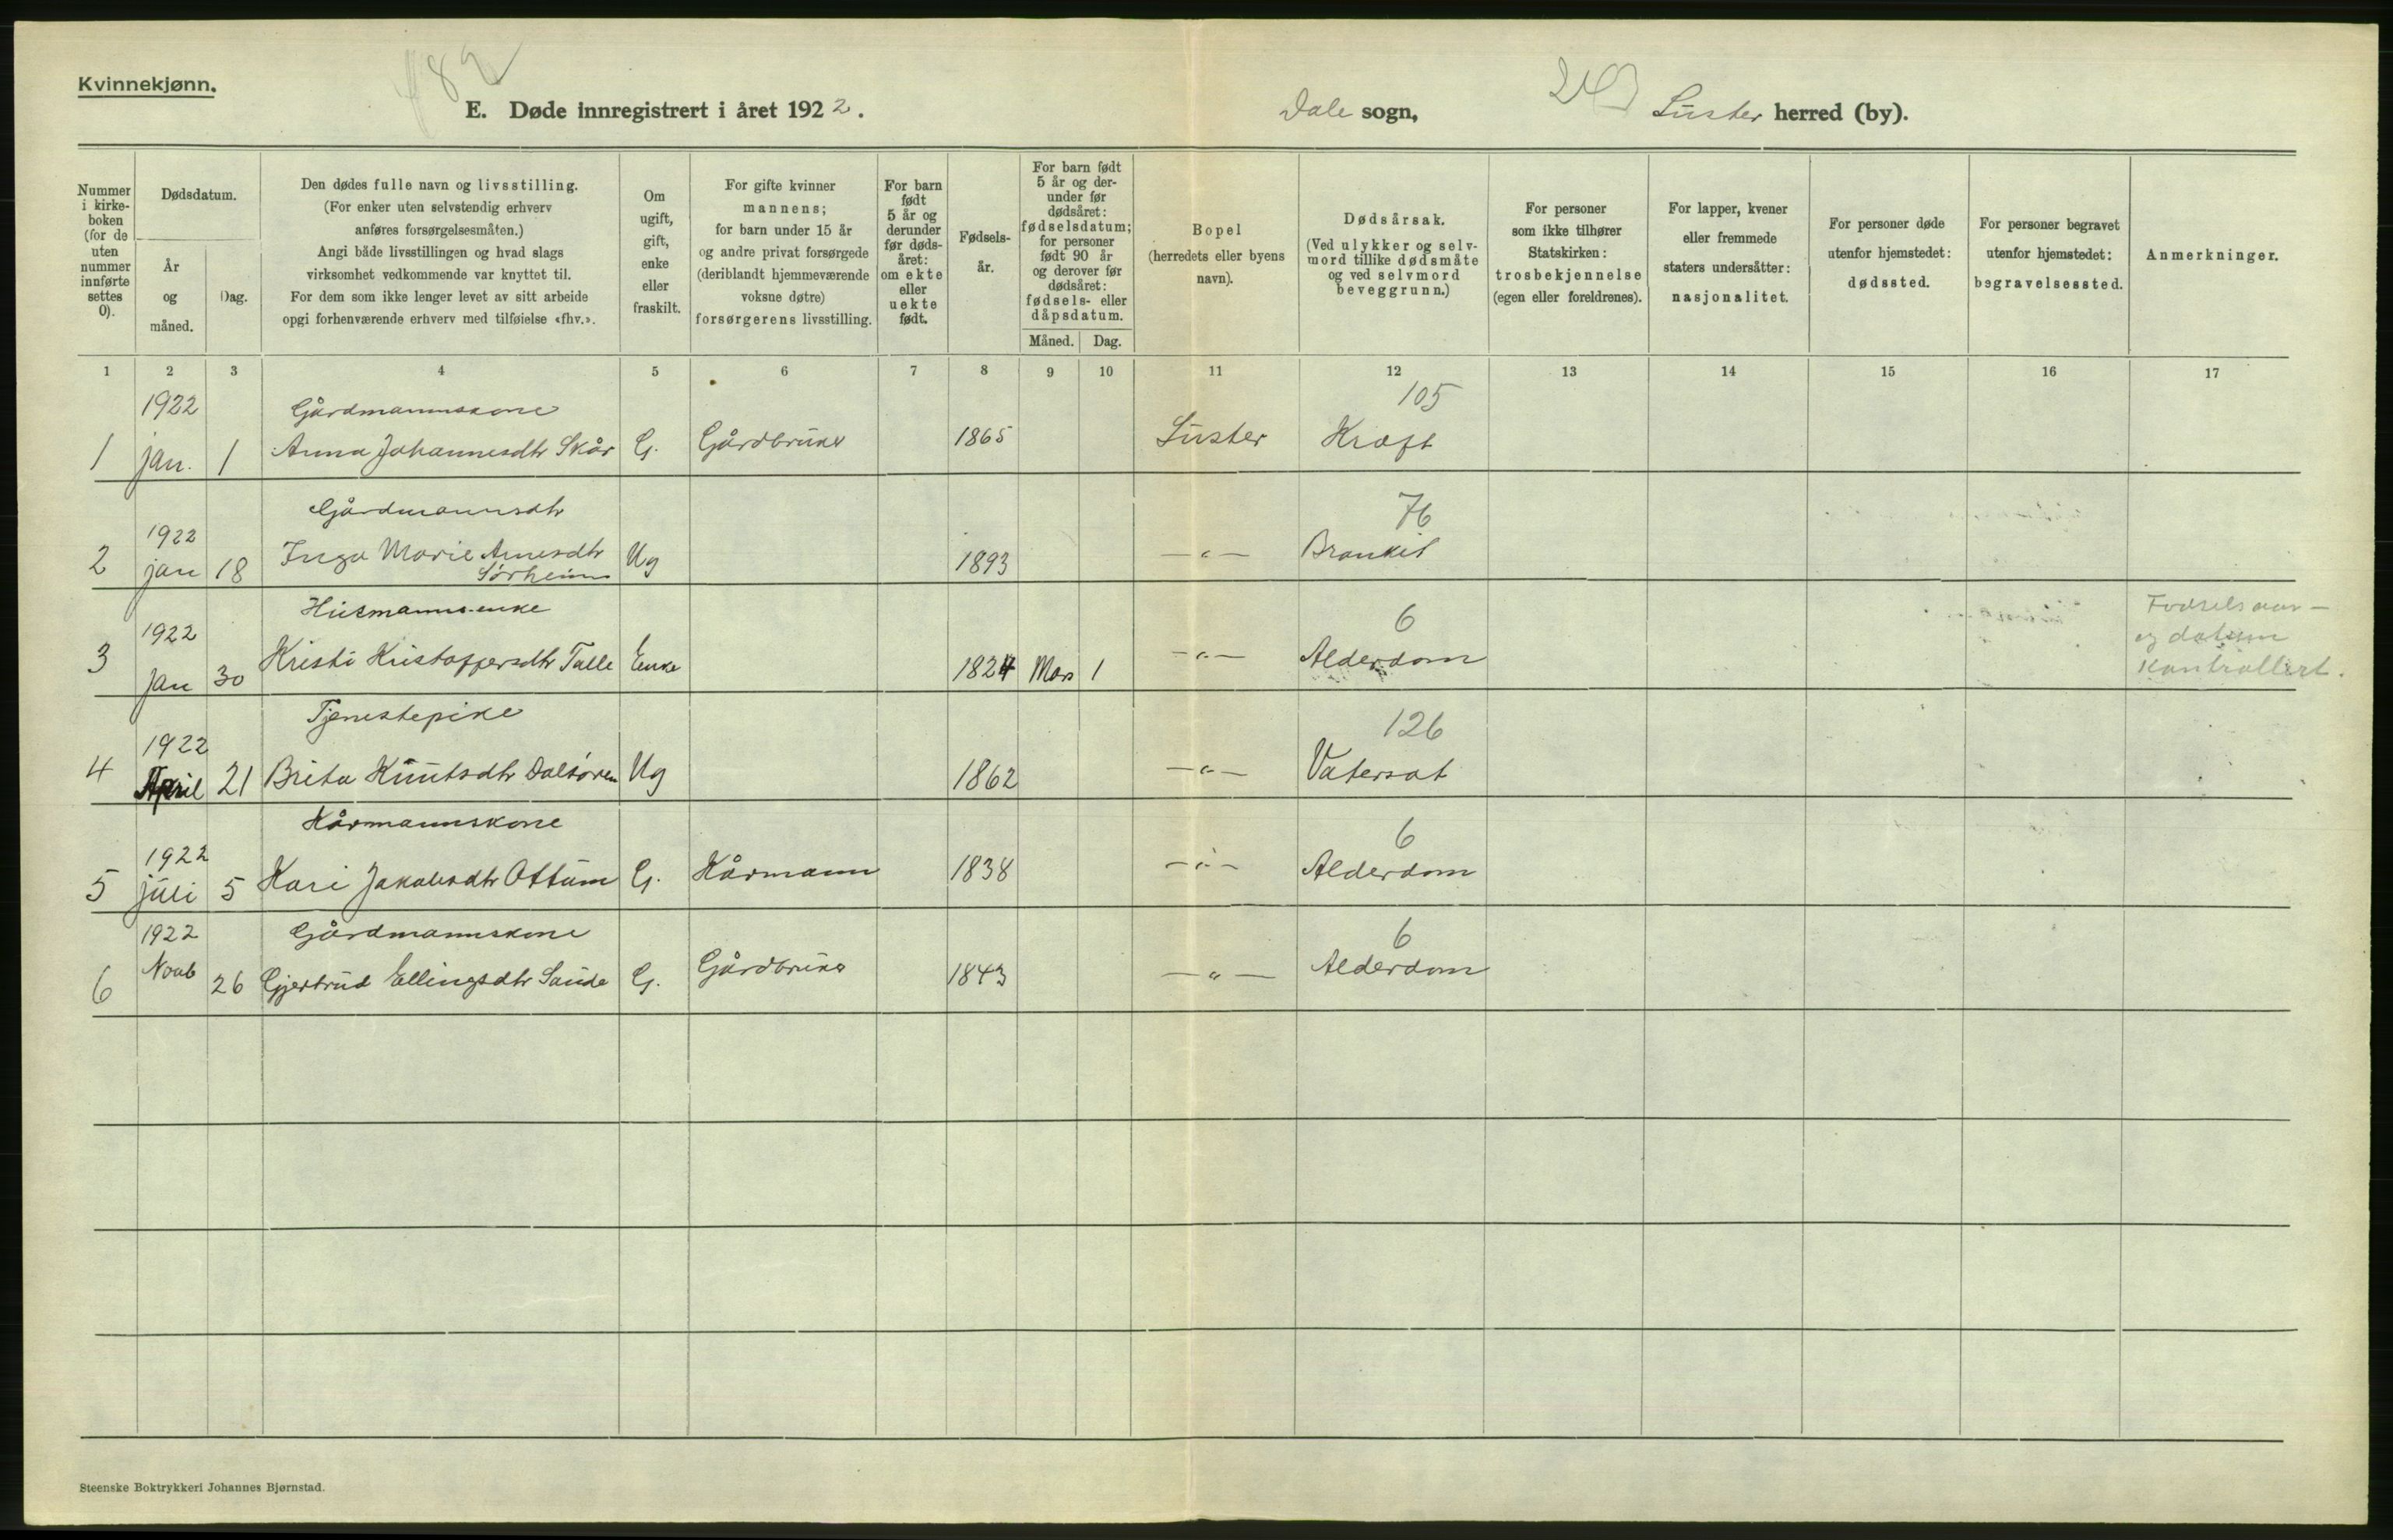 Kvinnekjønn.
182
E. Døde innregistrert i året 1922.
Dale sogn,
Luster herred (by).
Nummer i kirke- boken (for de uten nummer innførte settes 0).
Dødsdatum.
År og måned.
Dag.
Den dødes fulle navn og livsstilling.
(For enker uten selvstendig erhverv
anføres forsørgelsesmåten.)
Angi både livsstillingen og hvad slags
virksomhet vedkommende var knyttet til.
For dem som ikke lenger levet av sitt arbeide
opgi forhenværende erhverv med tilføielse «fhv.».
Om
ugift,
gift,
enke
eller
fraskilt.
For gifte kvinner
mannens;
for barn under 15 år
og andre privat forsørgede
(deriblandt hjemmeværende
voksne døtre)
forsørgerens livsstilling.
For barn
født
5 år og
derunder
før døds-
året:
om ekte
eller
uekte
født.
Fødsels-
år.
For barn født
5 år og der-
under før
dødsåret:
fødselsdatum;
for personer
født 90 år
og derover før
dødsåret:
fødsels- eller
dåpsdatum.
Måned. Dag.
Bopel
(herredets eller byens
navn).
Dødsårsak.
(Ved ulykker og selv-
mord tillike dødsmåte
og ved selvmord
beveggrunn.)
For personer
som ikke tilhører
Statskirken:
trosbekjennelse
(egen eller foreldrenes).
For lapper, kvener
eller fremmede
staters undersåtter:
nasjonalitet.
For personer døde
utenfor hjemstedet:
dødssted.
For personer begravet
utenfor hjemstedet:
begravelsessted.
Anmerkninger.
1 2 3 4 5 6 7 8 9 10 11 12 13 14 15 16 17
1922 Gårdmannskone 105
1 jan. 1 Anna Johannesdtr Skår G. Gårdbruker 1865 Luster Kræft
Gårdmannsdtr 76
1922
2 jan 18 Inga Marie Arnesdtr Ug 1893 — " — Bronkit
Sørheim
Husmannsenke 6 Fødselsaar-
1922 og datum
3 jan 30 Kristi Kristoffersdtr Talle Enke 1824 Mars 1 — " — Alderdom kontrollert.
Tjenestepike 126
1922
4 April 21 Brita Knutsdtr Dalsøren Ug 1862 — " — Vatersot
Kårmannskone 6
1922
5 juli 5 Kari Jakobsdtr Ottum G. Kårmann 1838 — " — Alderdom
1922 Gårdmannskone 6
6 Novb 26 Gjertrud Ellingsdtr Sande G. Gårdbruker 1843 — " — Alderdom
Steenske Boktrykkeri Johannes Bjørnstad.